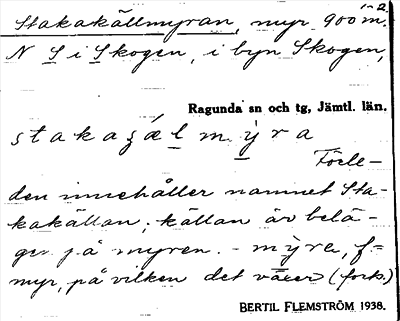 1-2.
Stakakällmyran, myr 900 m.
N S i Skogen, i byn Skogen,
Ragunda sn och tg, Jämtl. län.
stakaʒælmỳra
Förle-
den innehåller namnet Sta-
kakällan; källan är belä-
gen på myren. - mỳra, f=
myr, på vilken det växer (forts.)
BERTIL FLEMSTRÖM 1938.